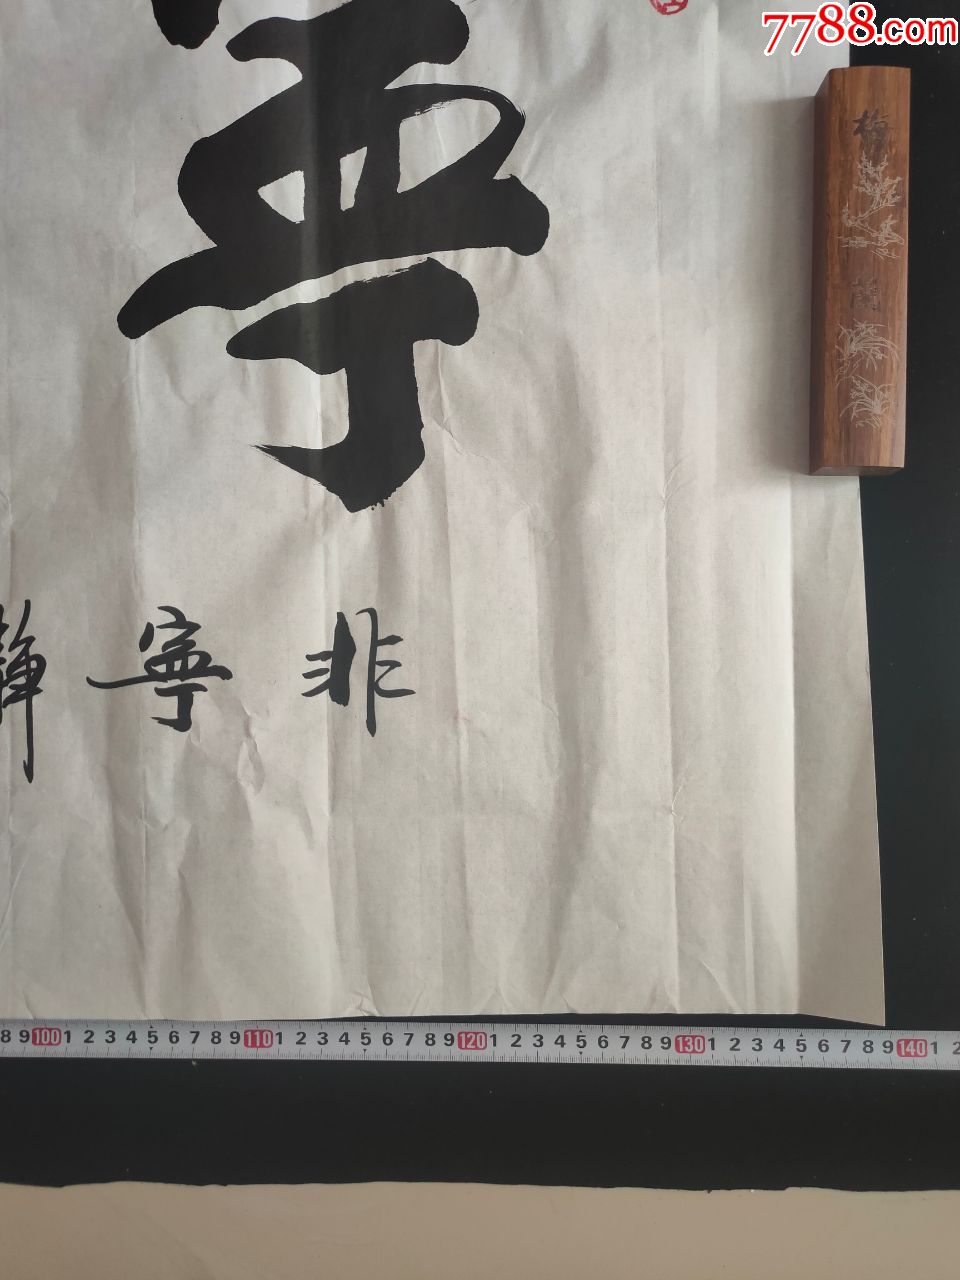 7788.com
寧
非寧靜
梅
蘭
8 9 100 1 2 3 4 5 6 7 8 9 110 1 2 3 4 5 6 7 8 9 120 1 2 3 4 5 6 7 8 9 130 1 2 3 4 5 6 7 8 9 140 1 2